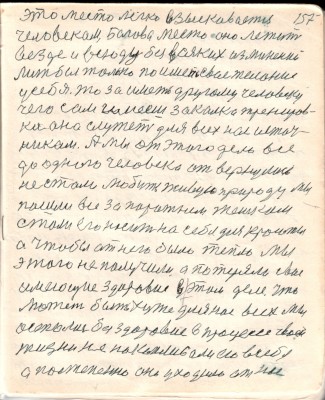 это место легко взыскивается 157
человеком. Богова место оно лежит
везде и всюду без всяких изменений
лишь бы только поиметь свое желание
у себя, то заиметь другому человеку
чего сам голосом закалка тренеров-
ка она служит для всех нас источ-
никам. А мы от этого дела все
до одного человека отвернулись
не стали любить живую природу мы
пошли все за паратным
стали его носить на себе для красоты
а чтобы от него было тепло мы
этого не получили, а потеряли свое
имеющее здоровие в этом деле. Что
может быть хуже для нас всех мы
остались без здоровие в процессе своей
жизни не накапливали его в себе
а постепенно она уходило от нас